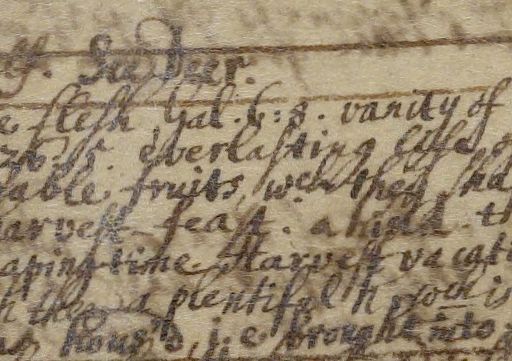 ff. See Deer.
e flesh Gal. 6: 8. vanity of
26. 5. everlasting life
able fruits, wch they sha
harvest feast. a hind. th
aping time Harvest vacati
h the a plentiful h wch is
hous'd, i. e. brought into